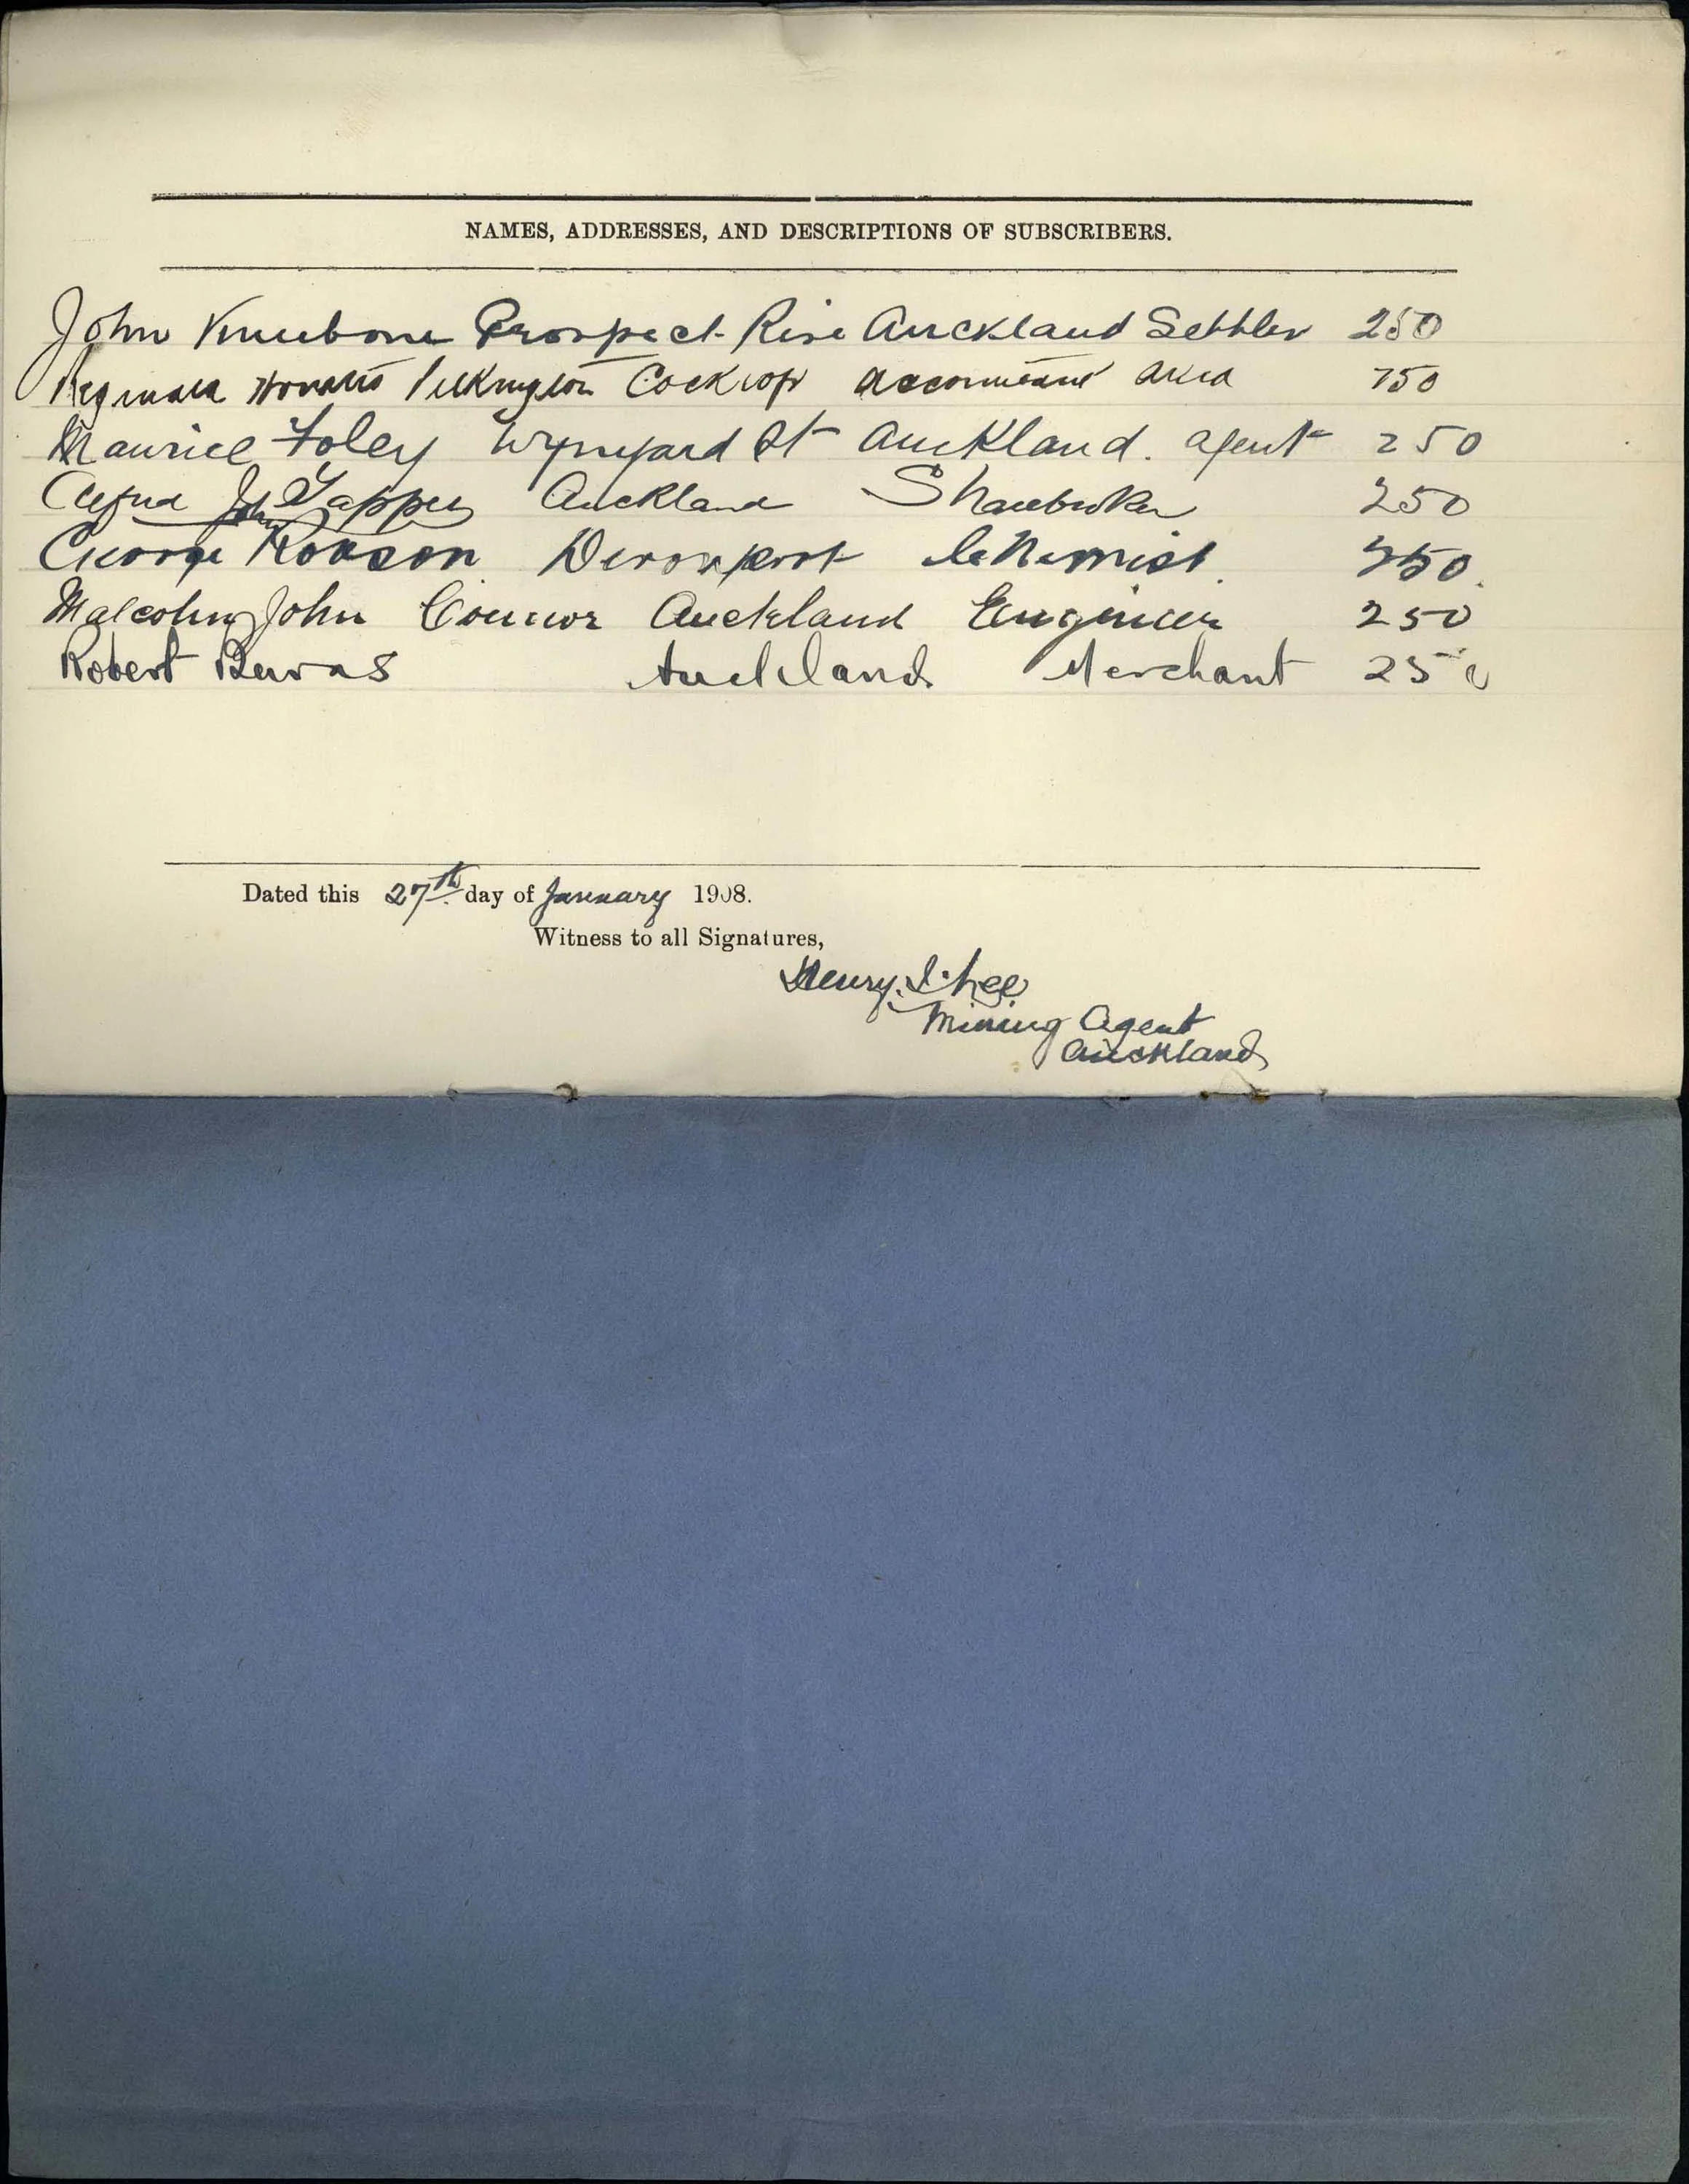 NAMES, ADDRESSES, AND DESCRIPTIONS OF SUBSCRIBERS.
John Kneebone Prospect Rise Auckland Settler 250
Reginald Pilkington accountant Akld
Maurice Foley Wynyard St Auckland. agent 250
John Tapper Auckland Sharebroker 250
George Robson Devonport Chemist. 250.
Malcolm John Connor Auckland Engineer 250
Robert Auckland Merchant 250
Dated this 27th day of January 1908.
Witness to all Signatures,
Henry. Lee
Mining Agent
Auckland